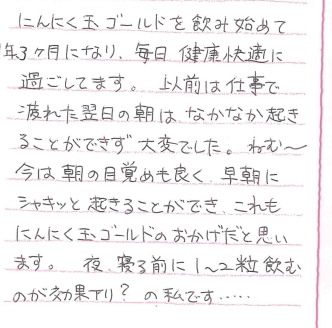 にんにく玉ゴールドを飲み始めて
年3ヶ月になり、毎日 健康快適に
過ごしてます。 以前は仕事で
疲れた翌日の朝は なかなか起き
ることができず 大変でした。 ねむ〜
今は 朝の目覚めも良く、早朝に
シャキッと 起きることができ、これも
にんにく玉ゴールドのおかげだと思い
ます。 夜、寝る前に 1〜2粒 飲む
のが効果アリ? の私です‥‥‥